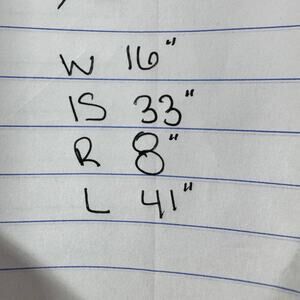 W 16"
IS 33"
R 8"
L 41"